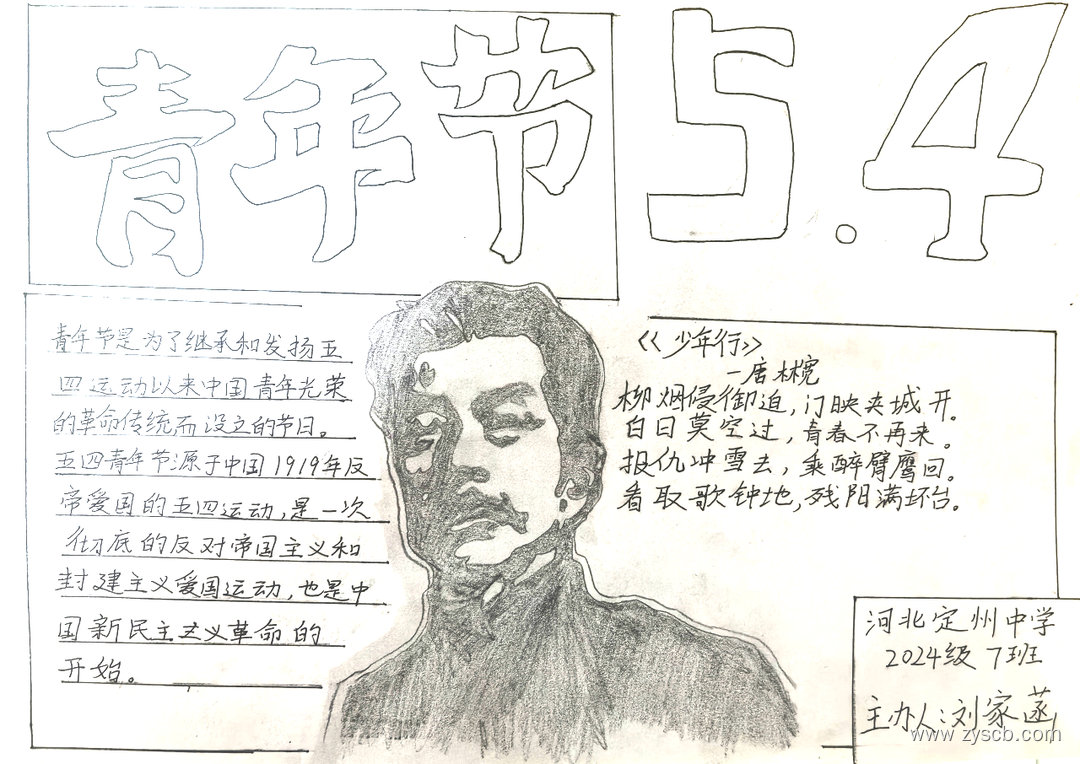 青年节 5.4
青年节是为了继承和发扬五
四运动以来中国青年光荣
的革命传统而设立的节日。
五四青年节源于中国1919年反
帝爱国的五四运动,是一次
彻底的反对帝国主义和
封建主义爱国运动,也是中
国新民主主义革命的
开始。
《少年行》
—唐林宽
柳烟侵御迫,门映夹城开。
白日莫空过,青春不再来。
报仇冲雪去,乘醉臂鹰回。
看取歌钟地,残阳满坏台。
河北定州中学
2024级7班
主办人:刘家菡
www.zyscb.com